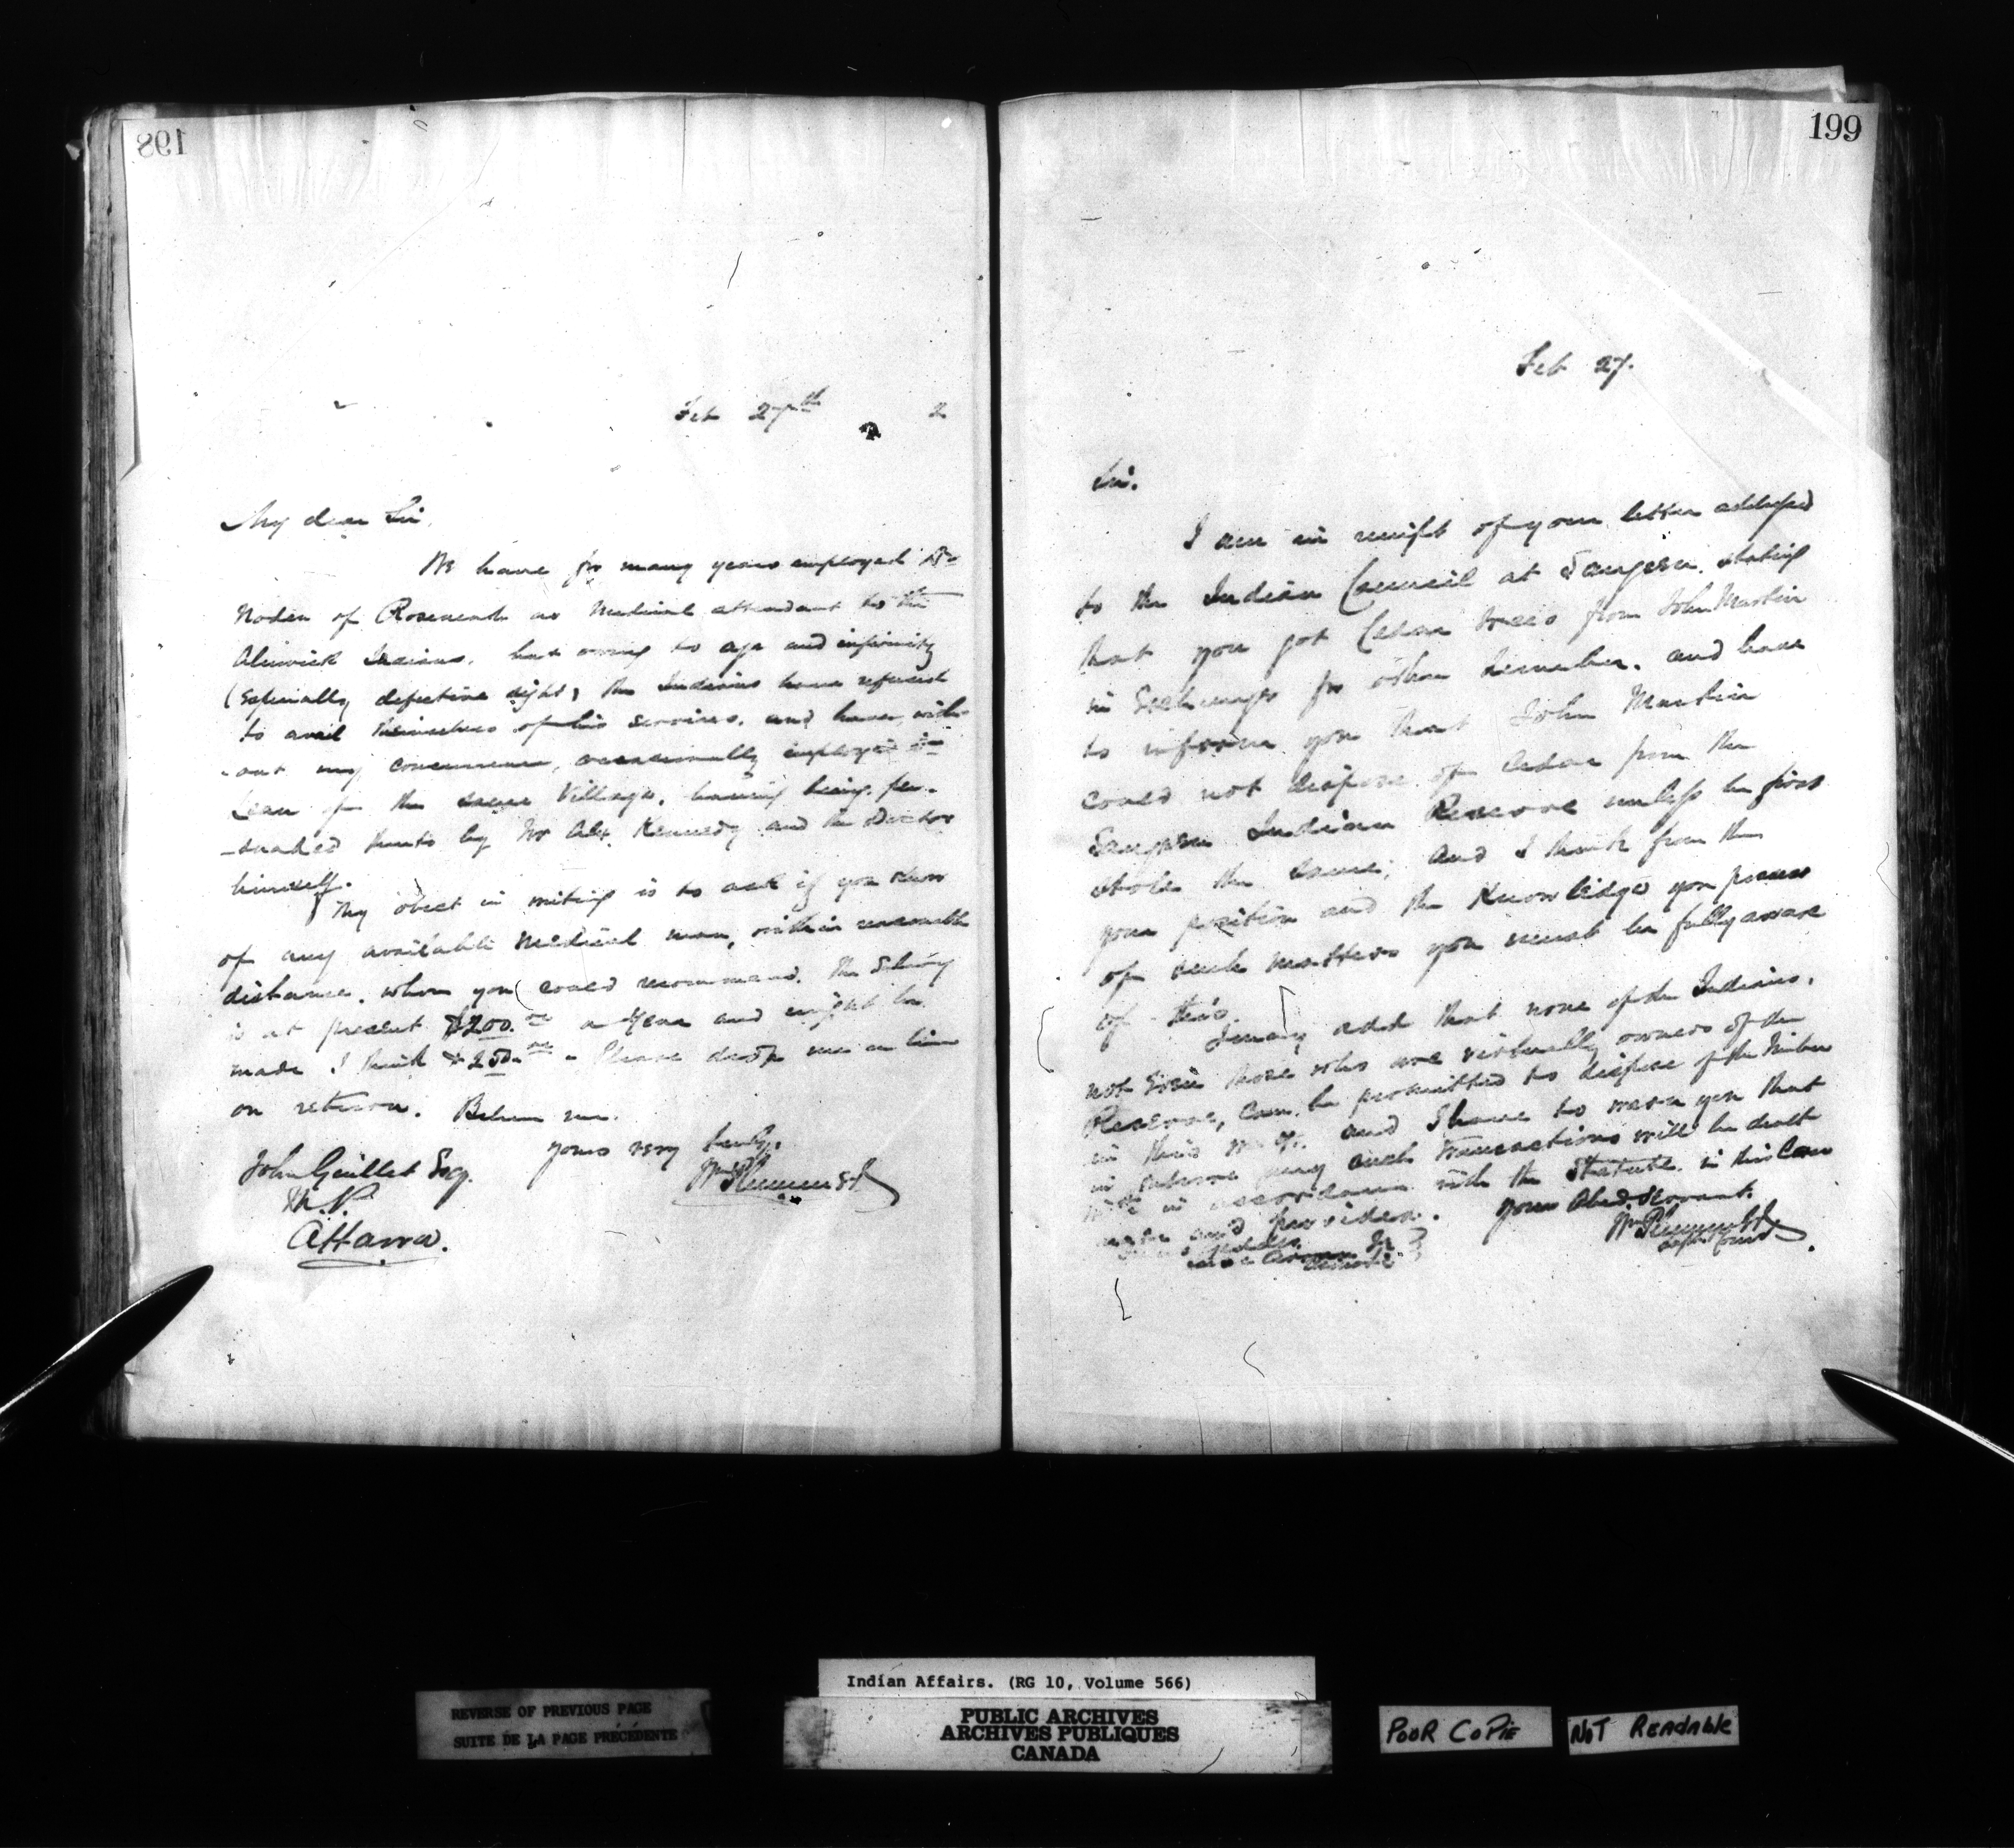 198
Feb 27th 2
My dear Sir,
We have for many years employed Dr
Noden of Roseneath as Medical attendant to the
Alnwick Indians, but owing to age and infirmity
(Especially defective sight) the Indians have refused
to avail themselves of his services, and have, with-
-out my concurrence, occasionally employed Dr
of the same Village, having being per-
-suaded thereto by Mr Alex Kennedy and the Doctor
himself.
My object in writing is to ask if you know
of any available Medical man, within reasonable
distance, whom you could recommend. The Salary
is at present $200.00 a year and might be
made I think $250.00 - Please drop me a line
on return. Believe me.
yours very truly,
Wm Plummer
John Guillet Esq.
M.P.
Ottawa.
199
Feb 27.
Sir.
I am in receipt of your letter addressed
to the Indian Council at Saugeen, stating
that you got Cedar trees from John Martin
in Exchange for other lumber, and have
to inform you that John Martin
could not dispose of Cedar from the
Saugeen Indian Reserve unless he first
stole the same; and I think from the
your position and the Knowledge you possess
of such matters you must be fully aware
of this.
I may add that none of the Indians,
not Even those who are virtually owners of the
Reserve, can be permitted to dispose of the timber
in this way. and I have to warn you that
in future any such transactions will be dealt
with in accordance with the Statute in this Case
made and provided.
Your Obed Servant.
Wm Plummer
Indian Affairs. (RG 10, Volume 566)
REVERSE OF PREVIOUS PAGE
SUITE DE LA PAGE PRÉCÉDENTE
PUBLIC ARCHIVES
ARCHIVES PUBLIQUES
CANADA
POOR COPIE
NOT READABLE